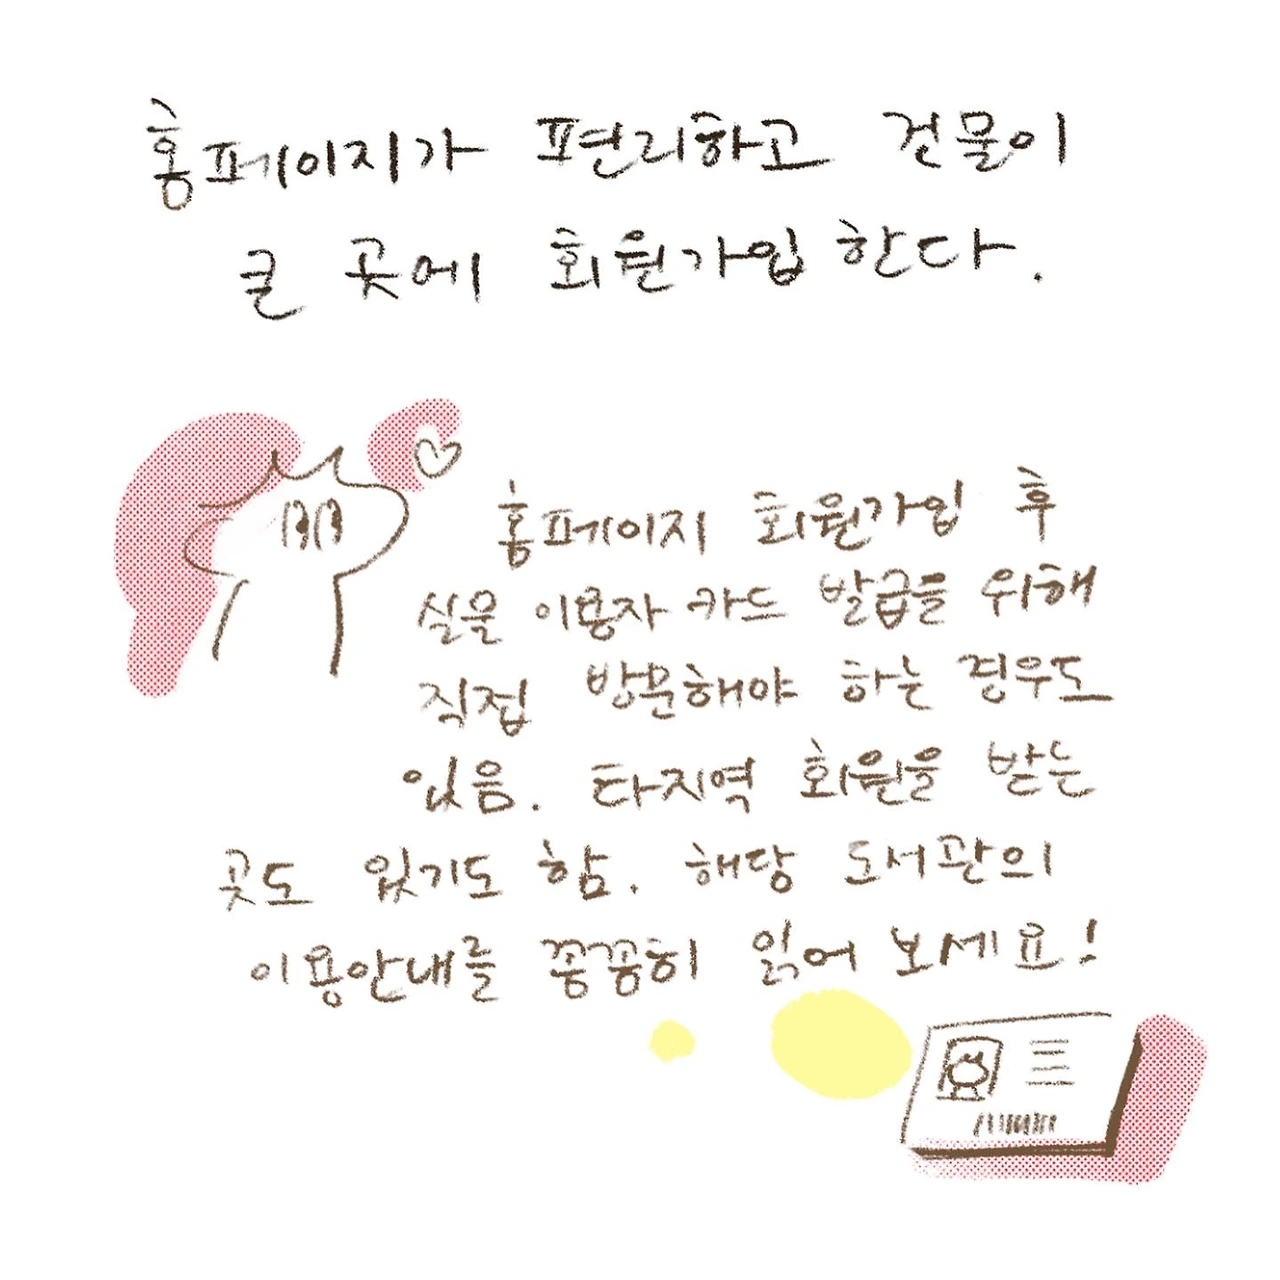 홈페이지가 편리하고 건물이
큰 곳에 회원가입 한다.
홈페이지 회원가입 후
실물 이용자 카드 발급을 위해
직접 방문해야 하는 경우도
있음. 타지역 회원을 받는
곳도 있기도 함. 해당 도서관의
이용안내를 꼼꼼히 읽어 보세요!